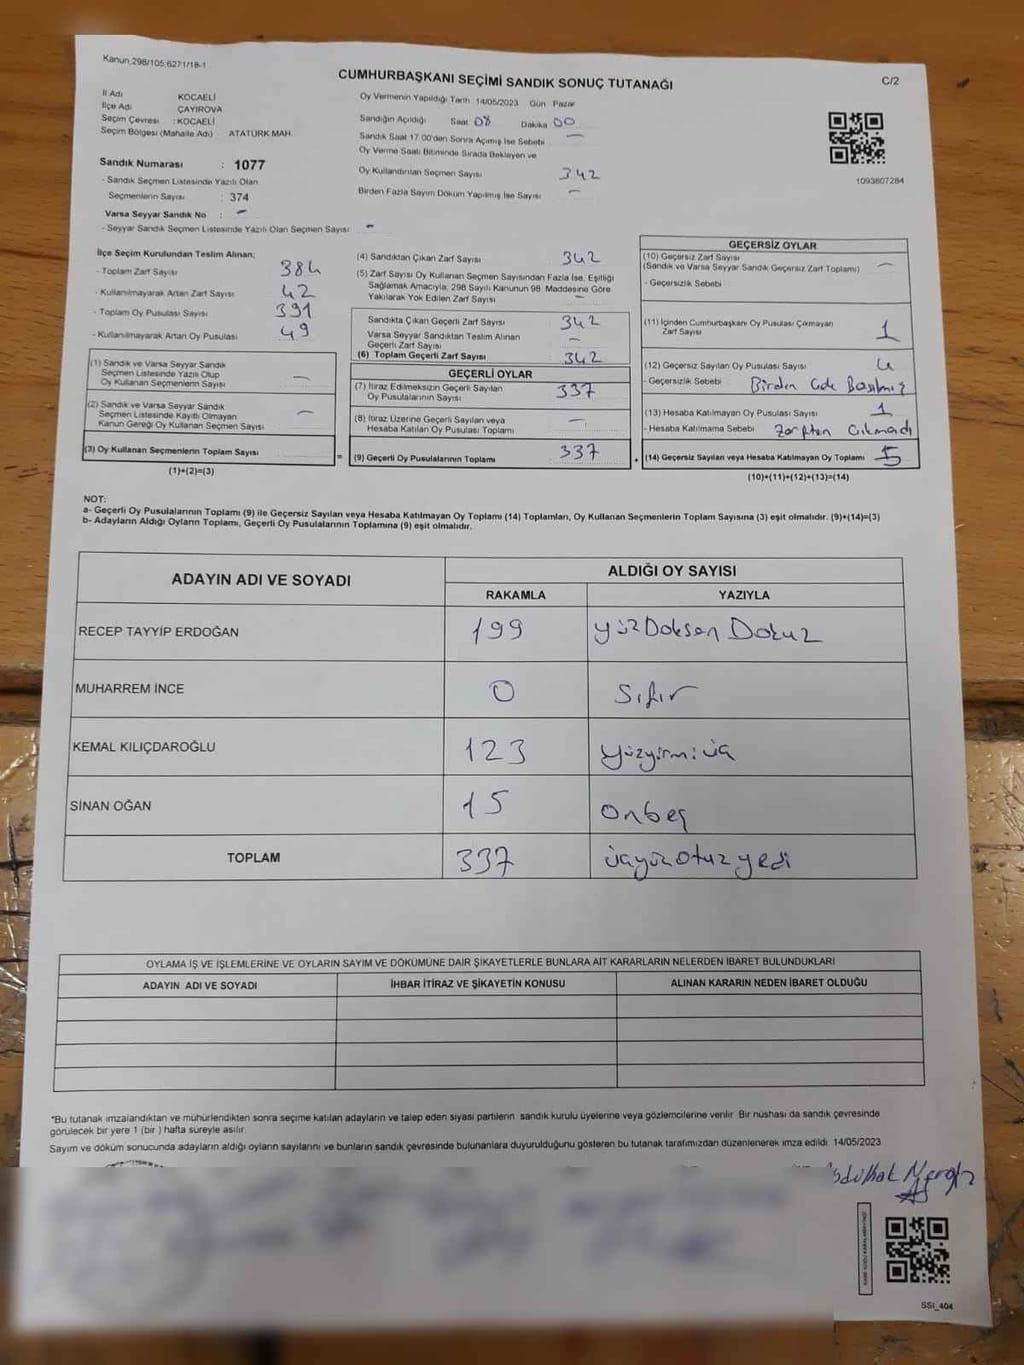 Kanun 298/105,6271/18-1
CUMHURBAŞKANI SEÇİMİ SANDIK SONUÇ TUTANAĞI
C/2
İl Adı KOCAELİ
İlçe Adı ÇAYIROVA
Seçim Çevresi : KOCAELİ
Seçim Bölgesi (Mahalle Adı) ATATÜRK MAH.
Sandık Numarası : 1077
- Sandık Seçmen Listesinde Yazılı Olan
Seçmenlerin Sayısı : 374
Varsa Seyyar Sandık No : -
- Seyyar Sandık Seçmen Listesinde Yazılı Olan Seçmen Sayısı : -
Oy Vermenin Yapıldığı Tarih 14/05/2023 Gün Pazar
Sandığın Açıldığı Saat 08 Dakika 00
Sandık Saat 17.00'den Sonra Açılmış İse Sebebi -
Oy Verme Saati Bitiminde Sırada Bekleyen ve
Oy Kullandırılan Seçmen Sayısı 342
Birden Fazla Sayım Döküm Yapılmış İse Sayısı -
1093807284
İlçe Seçim Kurulundan Teslim Alınan;
- Toplam Zarf Sayısı 384
- Kullanılmayarak Artan Zarf Sayısı 42
- Toplam Oy Pusulası Sayısı 391
- Kullanılmayarak Artan Oy Pusulası 49
(1) Sandık ve Varsa Seyyar Sandık
Seçmen Listesinde Yazılı Olup
Oy Kullanan Seçmenlerin Sayısı -
(2) Sandık ve Varsa Seyyar Sandık
Seçmen Listesinde Kayıtlı Olmayan
Kanun Gereği Oy Kullanan Seçmen Sayısı -
(3) Oy Kullanan Seçmenlerin Toplam Sayısı
(1)+(2)=(3)
(4) Sandıktan Çıkan Zarf Sayısı 342
(5) Zarf Sayısı Oy Kullanan Seçmen Sayısından Fazla İse, Eşitliği
Sağlamak Amacıyla, 298 Sayılı Kanunun 98. Maddesine Göre
Yakılarak Yok Edilen Zarf Sayısı -
Sandıkta Çıkan Geçerli Zarf Sayısı 342
Varsa Seyyar Sandıktan Teslim Alınan
Geçerli Zarf Sayısı -
(6) Toplam Geçerli Zarf Sayısı 342
GEÇERLİ OYLAR
(7) İtiraz Edilmeksizin Geçerli Sayılan
Oy Pusulalarının Sayısı 337
(8) İtiraz Üzerine Geçerli Sayılan veya
Hesaba Katılan Oy Pusulası Toplamı -
= (9) Geçerli Oy Pusulalarının Toplamı 337
GEÇERSİZ OYLAR
(10) Geçersiz Zarf Sayısı
(Sandık ve Varsa Seyyar Sandık Geçersiz Zarf Toplamı) -
- Geçersizlik Sebebi
(11) İçinden Cumhurbaşkanı Oy Pusulası Çıkmayan
Zarf Sayısı 1
(12) Geçersiz Sayılan Oy Pusulası Sayısı 4
- Geçersizlik Sebebi Birden Çok Basılmış
(13) Hesaba Katılmayan Oy Pusulası Sayısı 1
- Hesaba Katılmama Sebebi Zarftan Çıkmadı
+ (14) Geçersiz Sayılan veya Hesaba Katılmayan Oy Toplamı 5
(10)+(11)+(12)+(13)=(14)
NOT:
a- Geçerli Oy Pusulalarının Toplamı (9) ile Geçersiz Sayılan veya Hesaba Katılmayan Oy Toplamı (14) Toplamları, Oy Kullanan Seçmenlerin Toplam Sayısına (3) eşit olmalıdır. (9)+(14)=(3)
b- Adayların Aldığı Oyların Toplamı, Geçerli Oy Pusulalarının Toplamına (9) eşit olmalıdır.
ADAYIN ADI VE SOYADI ALDIĞI OY SAYISI
RAKAMLA YAZIYLA
RECEP TAYYİP ERDOĞAN 199 yüzDoksan Dokuz
MUHARREM İNCE 0 Sıfır
KEMAL KILIÇDAROĞLU 123 yüzyirmi üç
SİNAN OĞAN 15 onbeş
TOPLAM 337 üçyüzotuzyedi
OYLAMA İŞ VE İŞLEMLERİNE VE OYLARIN SAYIM VE DÖKÜMÜNE DAİR ŞİKAYETLERLE BUNLARA AİT KARARLARIN NELERDEN İBARET BULUNDUKLARI
ADAYIN ADI VE SOYADI İHBAR İTİRAZ VE ŞİKAYETİN KONUSU ALINAN KARARIN NEDEN İBARET OLDUĞU
"Bu tutanak imzalandıktan ve mühürlendikten sonra seçime katılan adayların ve talep eden siyasi partilerin sandık kurulu üyelerine veya gözlemcilerine verilir. Bir nüshası da sandık çevresinde
görülecek bir yere 1 (bir ) hafta süreyle asılır.
Sayım ve döküm sonucunda adayların aldığı oyların sayılarını ve bunların sandık çevresinde bulunanlara duyurulduğunu gösteren bu tutanak tarafımızdan düzenlenerek imza edildi. 14/05/2023
SSİ_404